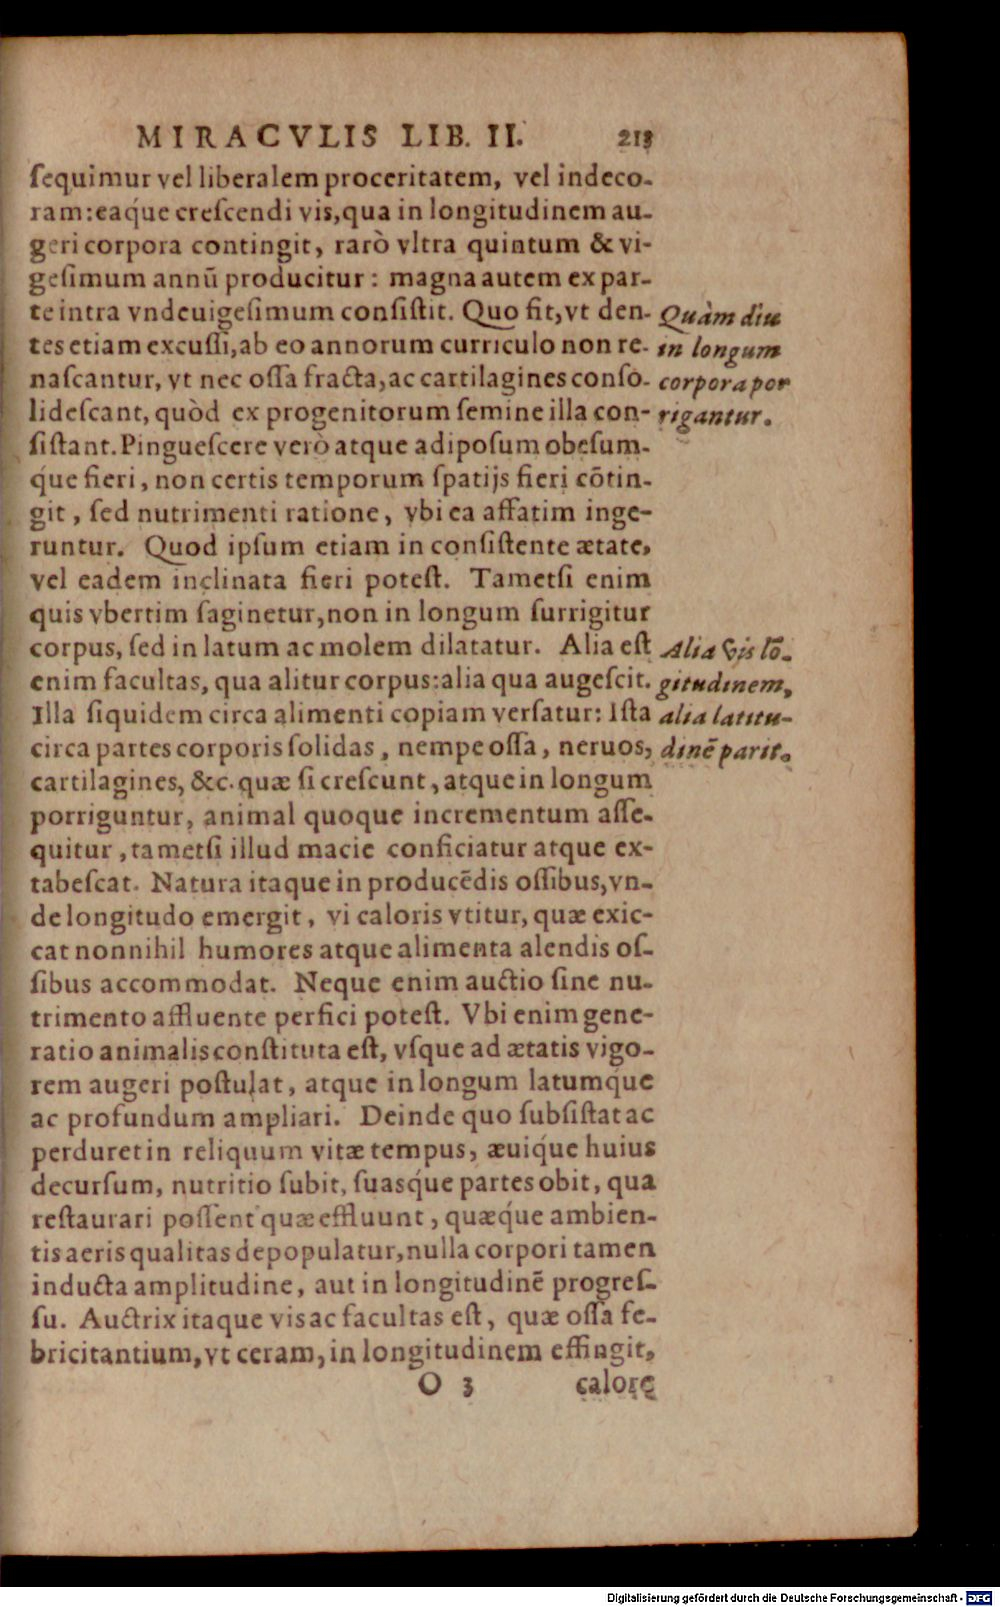 MIRACVLIS LIB. II. 213
ſequimur vel liberalem proceritatem, vel indeco-
ram: eaq́ue creſcendi vis, qua in longitudinem au-
geri corpora contingit, rarò vltra quintum & vi-
geſimum annũ producitur: magna autem ex par-
te intra vndeuigeſimum conſiſtit. Quo fit, vt den-
tes etiam excuſſi, ab eo annorum curriculo non re-
naſcantur, vt nec oſſa fracta, ac cartilagines conſo-
lideſcant, quòd ex progenitorum ſemine illa con-
ſiſtant. Pingueſcere verò atque adipoſum obeſum-
q́ue fieri, non certis temporum ſpatijs fieri cõtin-
git, ſed nutrimenti ratione, vbi ea affatim inge-
runtur. Quod ipſum etiam in conſiſtente ætate,
vel eadem inclinata fieri poteſt. Tametſi enim
quis vbertim ſaginetur, non in longum ſurrigitur
corpus, ſed in latum ac molem dilatatur. Alia eſt
enim facultas, qua alitur corpus: alia qua augeſcit.
Illa ſiquidem circa alimenti copiam verſatur: Iſta
circa partes corporis ſolidas, nempe oſſa, neruos,
cartilagines, &c. quæ ſi creſcunt, atque in longum
porriguntur, animal quoque incrementum aſſe-
quitur, tametſi illud macie conficiatur atque ex-
tabeſcat. Natura itaque in producẽdis oſſibus, vn-
de longitudo emergit, vi caloris vtitur, quæ exic-
cat nonnihil humores atque alimenta alendis oſ-
ſibus accommodat. Neque enim auctio ſine nu-
trimento affluente perfici poteſt. Vbi enim gene-
ratio animalis conſtituta eſt, vſque ad ætatis vigo-
rem augeri poſtulat, atque in longum latumq́ue
ac profundum ampliari. Deinde quo ſubſiſtat ac
perduret in reliquum vitæ tempus, æuiq́ue huius
decurſum, nutritio ſubit, ſuasq́ue partes obit, qua
reſtaurari poſſent quæ effluunt, quæq́ue ambien-
tis aeris qualitas depopulatur, nulla corpori tamen
inducta amplitudine, aut in longitudinẽ progreſ-
ſu. Auctrix itaque vis ac facultas eſt, quæ oſſa fe-
bricitantium, vt ceram, in longitudinem effingit,
O 3 calore
Quàm diu
in longum
corpora por
rigantur.
Alia vis lõ-
gitudinem,
alia latitu-
dinẽ parit.
Digitalisierung gefördert durch die Deutsche Forschungsgemeinschaft - DFG